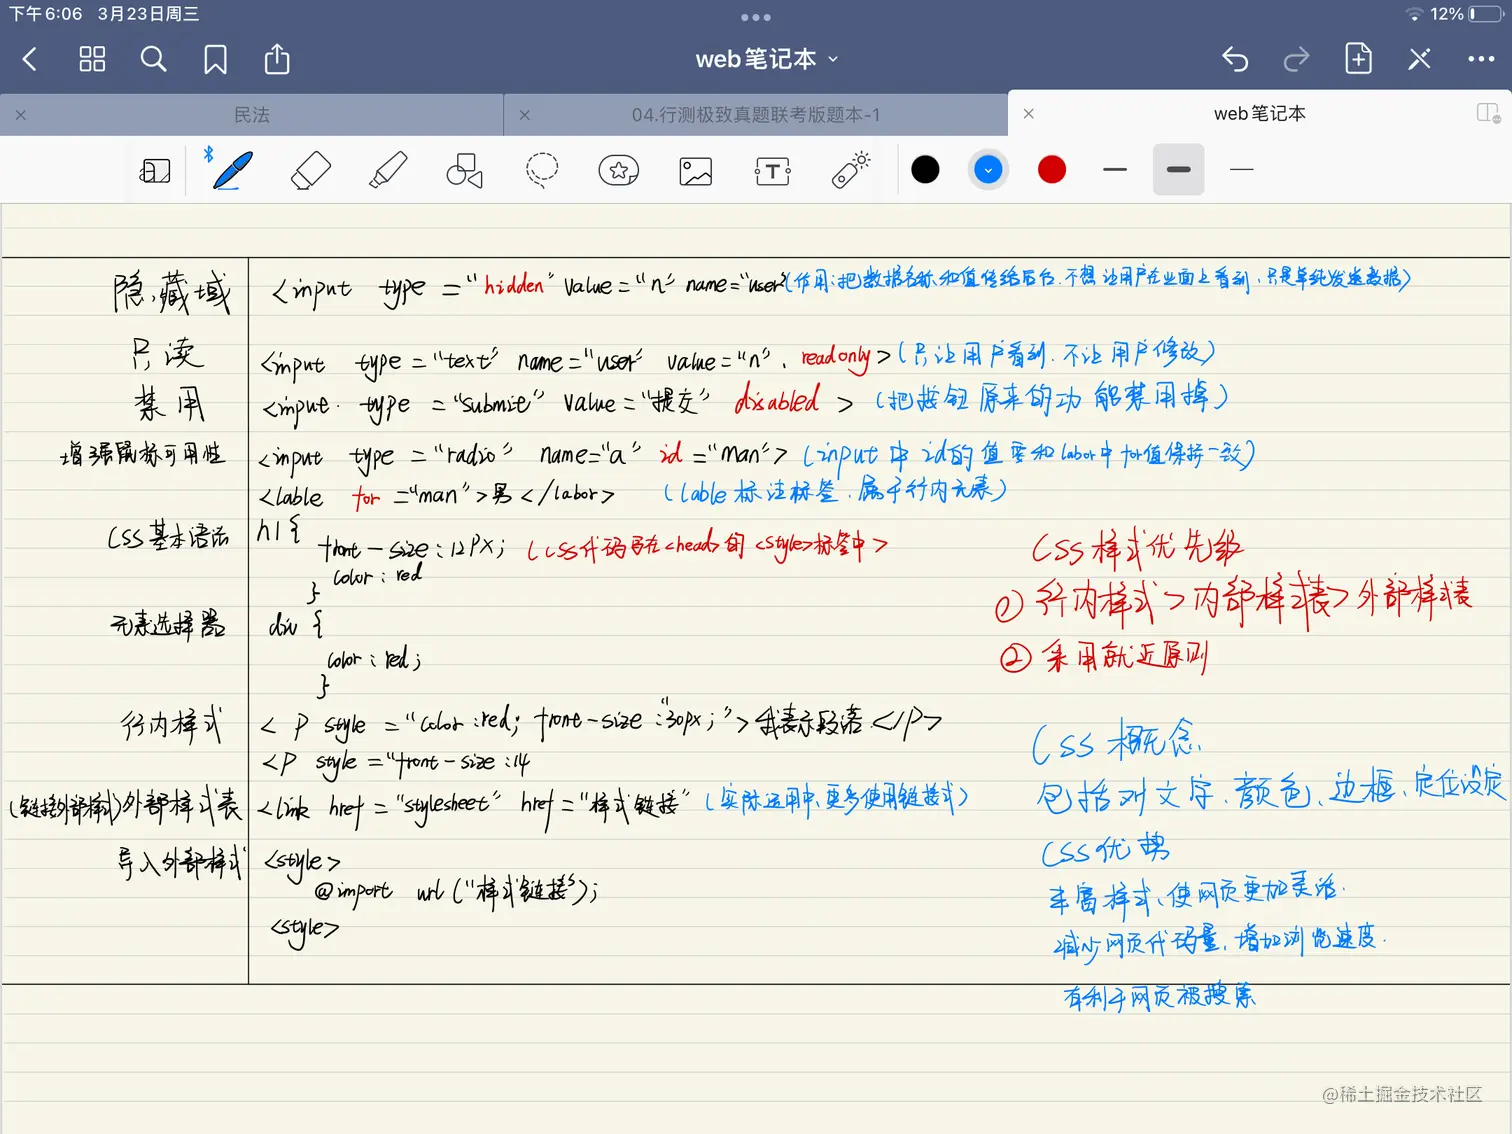 下午6:06 3月23日周三
12%
web笔记本
民法
04.行测极致真题联考版题本-1
web笔记本
隐藏域 <input type="hidden" value="n" name="user" (作用:把数据名称和值传给后台.不想让用户在业面上看到,只是单纯发送数据)
只读 <input type="text" name="user" value="n". readonly> (只让用户看到.不让用户修改)
禁用 <input type="submit" value="提交" disabled > (把按钮原来的功能禁用掉)
增强鼠标可用性 <input type="radio" name="a" id="man"> (input中id的值要和labor中for值保持一致)
<lable for="man">男</labor> (lable标注标签.属于行内元素)
CSS基本语法 h1{
front-size:12px; (CSS代码写在<head>的<style>标签中>
color:red
}
CSS样式优先级
① 行内样式>内部样式表>外部样式表
② 采用就近原则
元素选择器 div {
color:red;
}
行内样式 <P style="color:red; front-size:"30px;">我表示段落</P>
<P style="front-size:14
(链接外部样式)外部样式表 <link href="stylesheet" href="样式链接" (实际运用中,更多使用链接式)
导入外部样式 <style>
@import url("样式链接");
<style>
CSS概念
包括对文字、颜色、边框、定位设定
CSS优势
丰富样式、使网页更加灵活.
减少网页代码量,增加浏览速度.
有利于网页被搜索
@稀土掘金技术社区